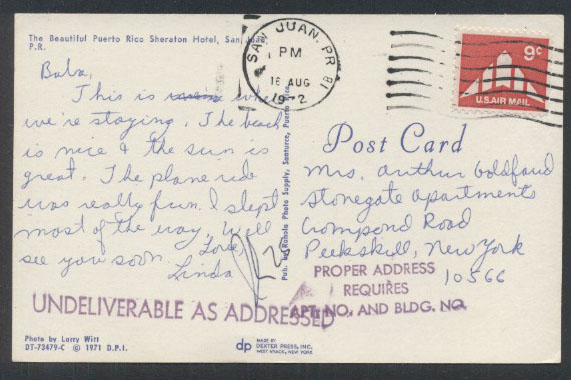 The Beautiful Puerto Rico Sheraton Hotel, San Juan,
P.R.
Baba,
This is where
we're staying. The beach
is nice & the sun is
great. The plane ride
was really fun. I slept
most of the way. Will
see you soon. Love,
Linda
UNDELIVERABLE AS ADDRESSED
Photo by Larry Witt
DT-73479-C © 1971 D.P.I.
Pub. by Rahola Photo Supply, Santurce, Puerto Rico
dp
MADE BY
DEXTER PRESS, INC.
WEST NYACK, NEW YORK
SAN JUAN, PR
PM
16 AUG
1972
9c
U.S. AIR MAIL
Post Card
Mrs. Arthur Goldfarb
Stonegate Apartments
Crompond Road
Peekskill, New York
10566
PROPER ADDRESS
REQUIRES
APT. NO. AND BLDG. NO.